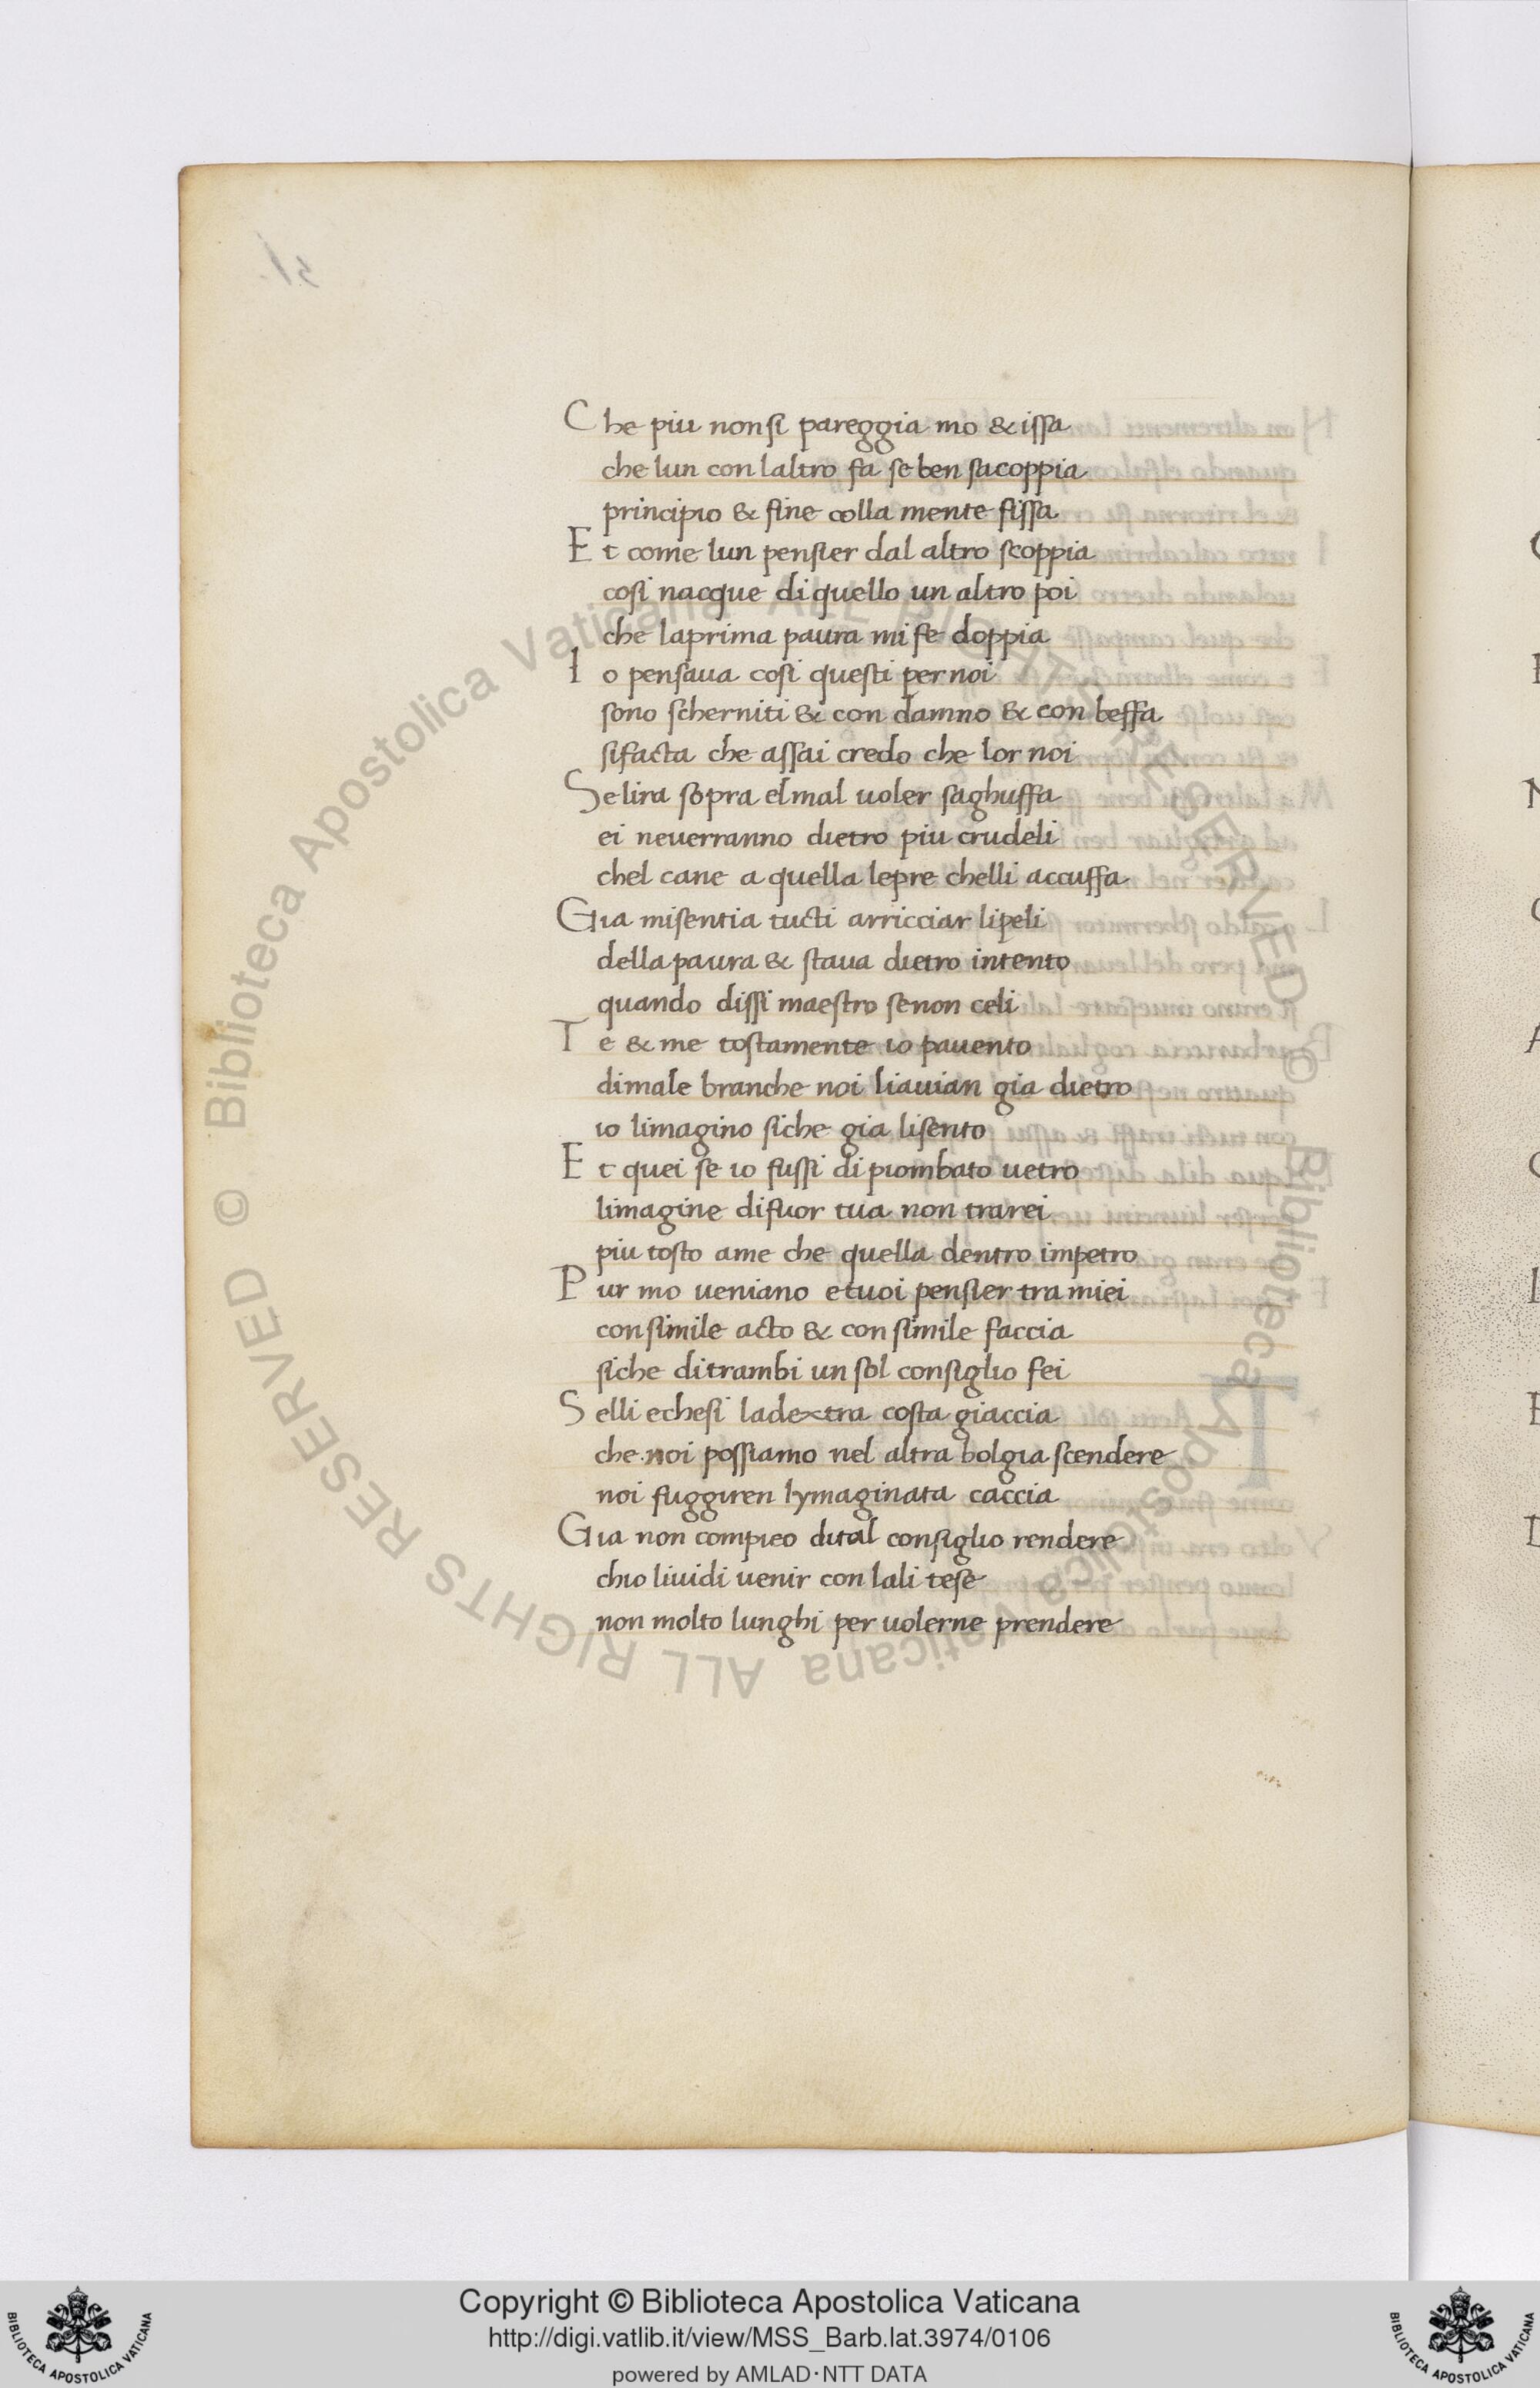 Che piu non si pareggia mo & issa
che lun con laltro fa se ben sacoppia
principio & fine colla mente fissa
Et come lun pensier dal altro scoppia
cosi nacque di quello un altro poi
che laprima paura mi fe doppia
Io pensaua cosi questi per noi
sono scherniti & con damno & con beffa
sifacta che assai credo che lor noi
Se lira sopra el mal uoler saghuffa
ei neuerranno dietro piu crudeli
chel cane a quella lepre chelli accuffa
Gia misentia tucti arricciar lipeli
della paura & staua dietro intento
quando dissi maestro se non celi
Te & me tostamente io pauento
di male branche noi liauian gia dietro
io limagino siche gia lisento
Et quei se io fussi di piombato uetro
limagine difuor tua non trarei
piu tosto ame che quella dentro impetro
Pur mo ueniano etuoi pensier tra miei
con simile acto & con simile faccia
siche ditrambi un sol consiglio fei
Selli echesi ladextra costa giaccia
che noi possiamo nel altra bolgia scendere
noi fuggiren lymaginata caccia
Gia non compieo dital consiglio rendere
chio liuidi uenir con lali tese
non molto lunghi per uolerne prendere
© Biblioteca Apostolica Vaticana ALL RIGHTS RESERVED © Biblioteca Apostolica Vaticana ALL RIGHTS RESERVED
Copyright © Biblioteca Apostolica Vaticana
http://digi.vatlib.it/view/MSS_Barb.lat.3974/0106
powered by AMLAD·NTT DATA
BIBLIOTECA APOSTOLICA VATICANA
BIBLIOTECA APOSTOLICA VATICANA